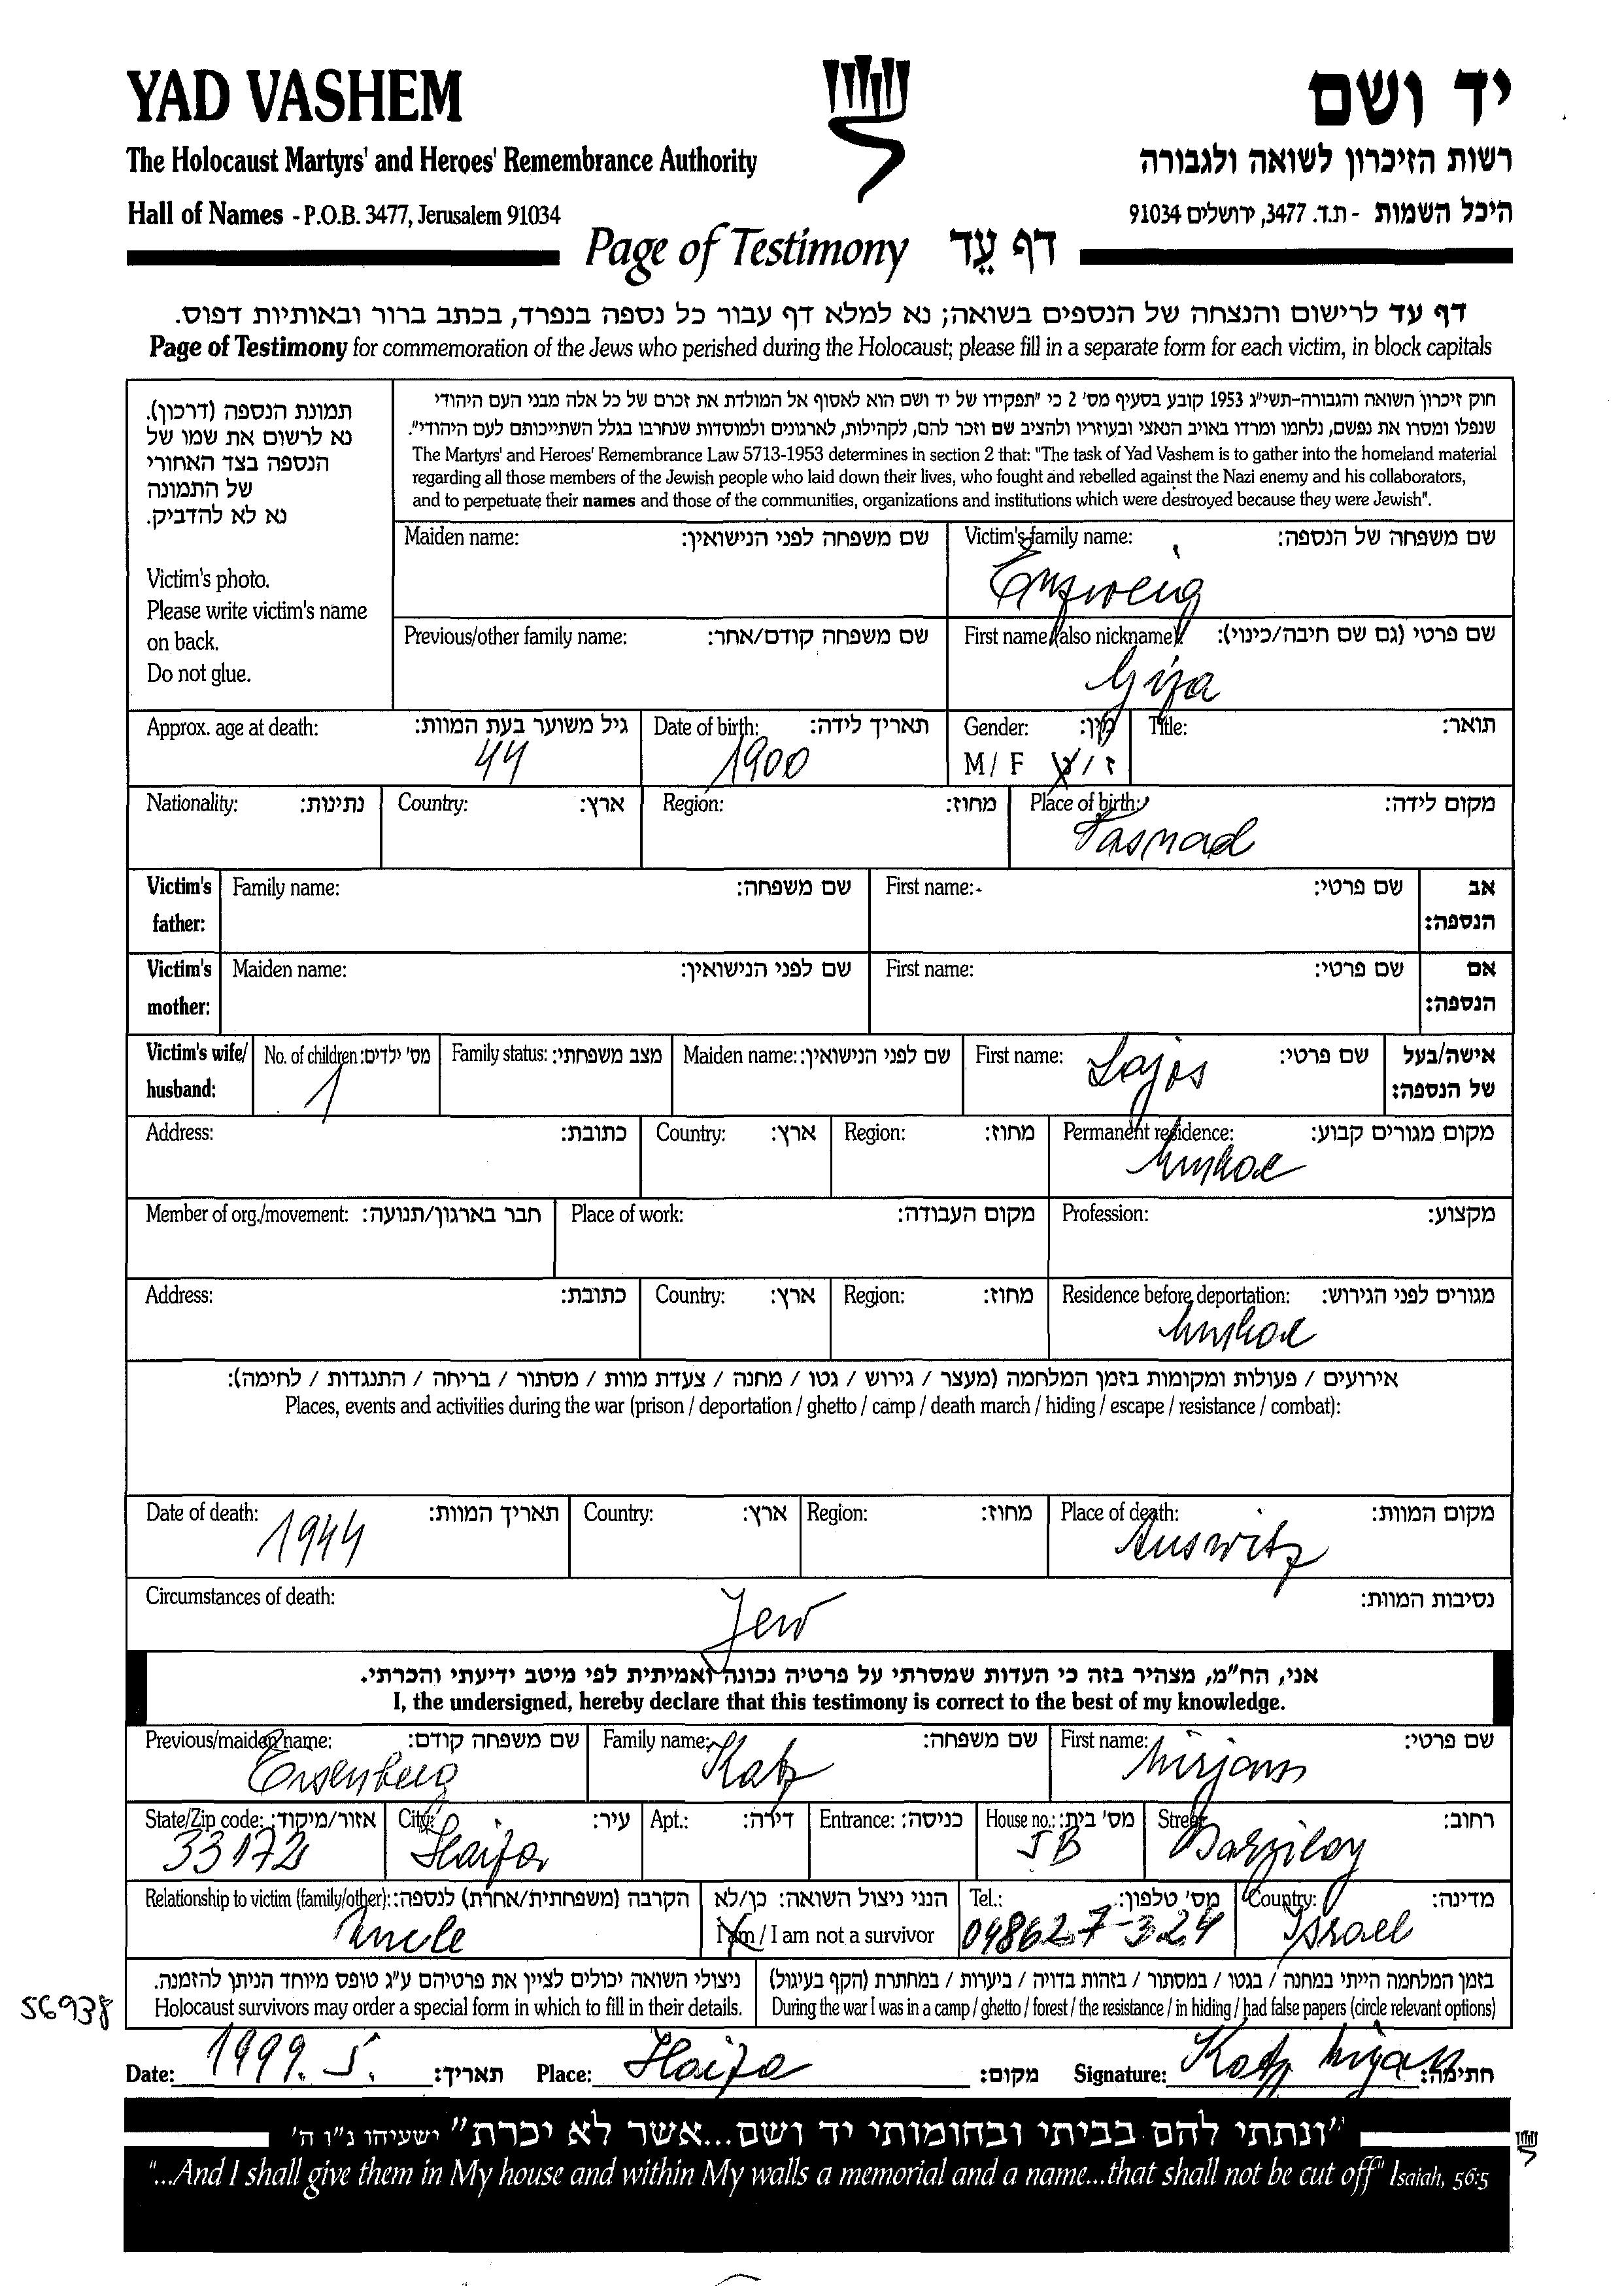 YAD VASHEM
יד ושם
The Holocaust Martyrs' and Heroes' Remembrance Authority
רשות הזיכרון לשואה ולגבורה
Hall of Names - P.O.B. 3477, Jerusalem 91034
היכל השמות - ת.ד. 3477, ירושלים 91034
Page of Testimony דף עֵד
דף עד לרישום והנצחה של הנספים בשואה; נא למלא דף עבור כל נספה בנפרד, בכתב ברור ובאותיות דפוס.
Page of Testimony for commemoration of the Jews who perished during the Holocaust; please fill in a separate form for each victim, in block capitals
תמונת הנספה (דרכון).
נא לרשום את שמו של
הנספה בצד האחורי
של התמונה
נא לא להדביק.
Victim's photo.
Please write victim's name
on back.
Do not glue.
חוק זיכרון השואה והגבורה-תשי"ג 1953 קובע בסעיף מס' 2 כי "תפקידו של יד ושם הוא לאסוף אל המולדת את זכרם של כל אלה מבני העם היהודי
שנפלו ומסרו את נפשם, נלחמו ומרדו באויב הנאצי ובעוזריו ולהציב שם וזכר להם, לקהילות, לארגונים ולמוסדות שנחרבו בגלל השתייכותם לעם היהודי".
The Martyrs' and Heroes' Remembrance Law 5713-1953 determines in section 2 that: "The task of Yad Vashem is to gather into the homeland material
regarding all those members of the Jewish people who laid down their lives, who fought and rebelled against the Nazi enemy and his collaborators,
and to perpetuate their names and those of the communities, organizations and institutions which were destroyed because they were Jewish".
Maiden name: שם משפחה לפני הנישואין:
Victim's family name: שם משפחה של הנספה:
Previous/other family name: שם משפחה קודם/אחר:
First name (also nickname): שם פרטי (גם שם חיבה/כינוי):
Giza
Approx. age at death: גיל משוער בעת המוות:
44
Date of birth: תאריך לידה:
1900
Gender: מין:
M / F ז / נ
Title: תואר:
Nationality: נתינות:
Country: ארץ:
Region: מחוז:
Place of birth: מקום לידה:
Tasnad
Victim's father: Family name: שם משפחה:
First name: שם פרטי: אב הנספה:
Victim's mother: Maiden name: שם לפני הנישואין:
First name: שם פרטי: אם הנספה:
Victim's wife/husband: No. of children: מס' ילדים:
1
Family status: מצב משפחתי:
Maiden name: שם לפני הנישואין:
First name: שם פרטי: אישה/בעל של הנספה:
Lajos
Address: כתובת:
Country: ארץ:
Region: מחוז:
Permanent residence: מקום מגורים קבוע:
Member of org./movement: חבר בארגון/תנועה:
Place of work: מקום העבודה:
Profession: מקצוע:
Address: כתובת:
Country: ארץ:
Region: מחוז:
Residence before deportation: מגורים לפני הגירוש:
אירועים / פעולות ומקומות בזמן המלחמה (מעצר / גירוש / גטו / מחנה / צעדת מוות / מסתור / בריחה / התנגדות / לחימה):
Places, events and activities during the war (prison / deportation / ghetto / camp / death march / hiding / escape / resistance / combat):
Date of death: תאריך המוות:
1944
Country: ארץ:
Region: מחוז:
Place of death: מקום המוות:
Auswitz
Circumstances of death: נסיבות המוות:
Jew
אני, הח"מ, מצהיר בזה כי העדות שמסרתי על פרטיה נכונה ואמיתית לפי מיטב ידיעתי והכרתי.
I, the undersigned, hereby declare that this testimony is correct to the best of my knowledge.
Previous/maiden name: שם משפחה קודם:
Eisenberg
Family name: שם משפחה:
Katz
First name: שם פרטי:
Mirjam
State/Zip code: אזור/מיקוד:
33172
City: עיר:
Haifa
Apt.: דירה:
Entrance: כניסה:
House no.: מס' בית:
5B
Street: רחוב:
Barzilay
Relationship to victim (family/other): הקרבה (משפחתית/אחרת) לנספה:
Uncle
הנני ניצול השואה: כן/לא
I am / I am not a survivor
Tel.: מס' טלפון:
048627-324
Country: מדינה:
Israel
ניצולי השואה יכולים לציין את פרטיהם ע"ג טופס מיוחד הניתן להזמנה.
Holocaust survivors may order a special form in which to fill in their details.
בזמן המלחמה הייתי במחנה / בגטו / במסתור / בזהות בדויה / ביערות / במחתרת (הקף בעיגול)
During the war I was in a camp / ghetto / forest / the resistance / in hiding / had false papers (circle relevant options)
56938
Date: 1999. 5. תאריך: Place: Haifa מקום: Signature: Katz Mirjam חתימה:
"ונתתי להם בביתי ובחומותי יד ושם...אשר לא יכרת" ישעיהו נ"ו ה'
"...And I shall give them in My house and within My walls a memorial and a name...that shall not be cut off" Isaiah, 56:5